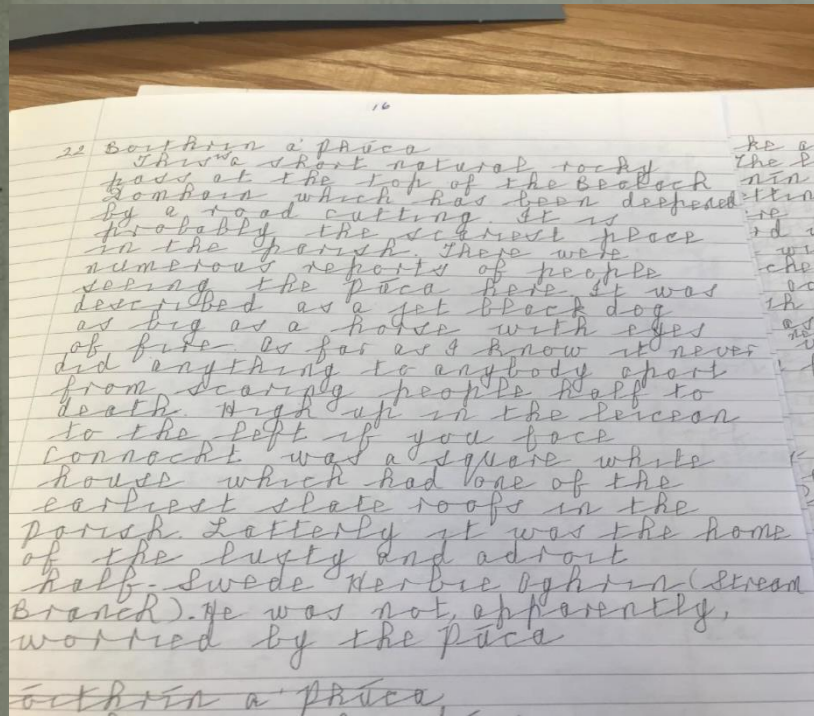 16
22 Boithrin a' Phúca
This is a short natural rocky
pass at the top of the Bealach
Domhain which has been deepened
by a road cutting. It is
probably the scariest place
in the parish. There were
numerous reports of people
seeing the Púca here. It was
described as a jet black dog
as big as a house with eyes
of fire. As far as I know it never
did anything to anybody apart
from scaring people half to
death. High up in the Leicean
to the left if you face
Connacht was a square white
house which had one of the
earliest slate roofs in the
Parish. Latterly it was the home
of the lusty and adroit
half-Swede Herbie Oghrin (Stream
Branch). He was not, apparently,
worried by the Púca
óithrín a' Phúca,